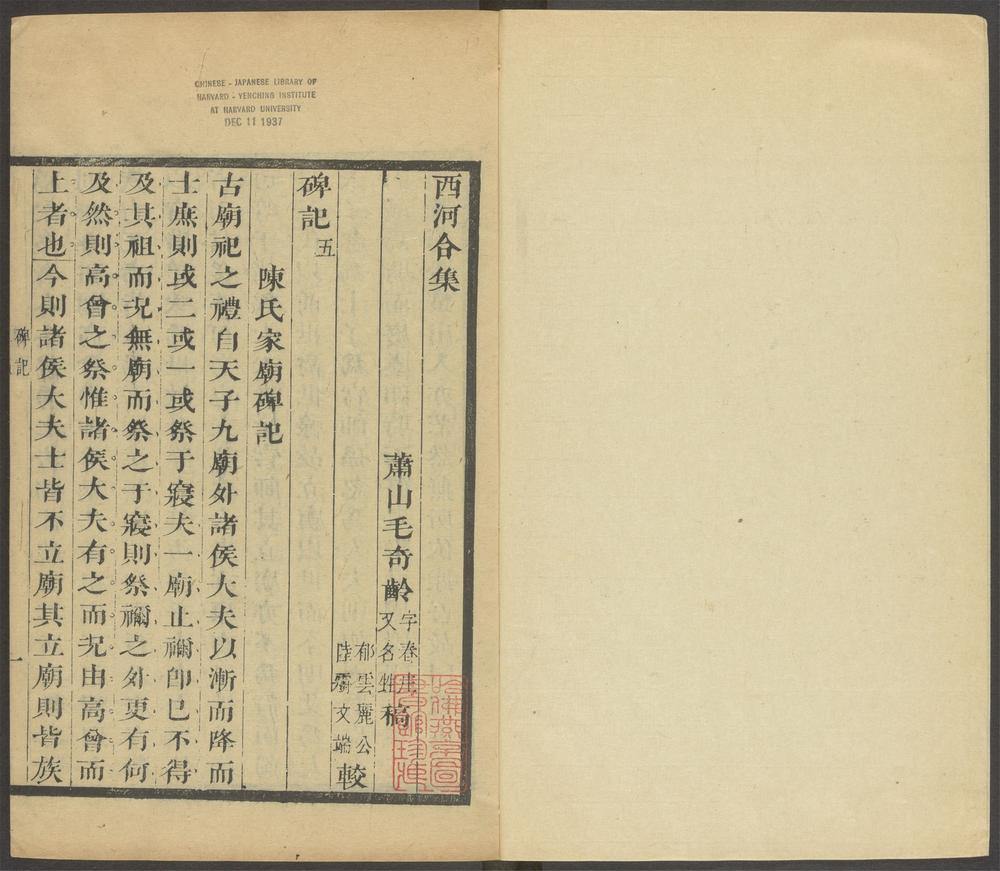 CHINESE - JAPANESE LIBRARY OF
HARVARD - YENCHING INSTITUTE
AT HARVARD UNIVERSITY
DEC 11 1937
西河合集
蕭山毛奇齡字春庄又名甡稿
郁雲麗公
陸文端較
碑記五
陳氏家廟碑記
古廟祀之禮自天子九廟外諸侯大夫以漸而降而
士庶則或二或一或祭于寢夫一廟止禰卽巳不得
及其祖而况無廟而祭之于寢則祭禰之外更有何
及然則高曾之祭惟諸侯大夫有之而况由高曾而
上者也今則諸侯大夫士皆不立廟其立廟則皆族
碑記
一
哈佛燕京圖
書館珍藏